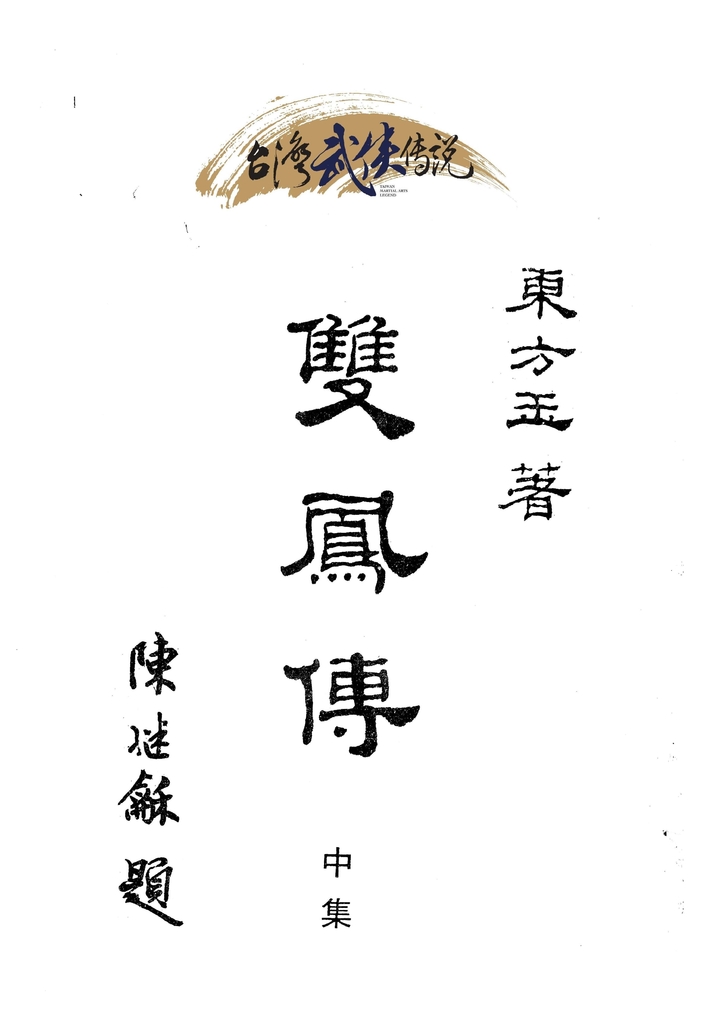 台灣武侠传说
TAIWAN
MARTIAL ARTS
LEGEND
東方玉著
雙鳳傳
中集
陳继龢題